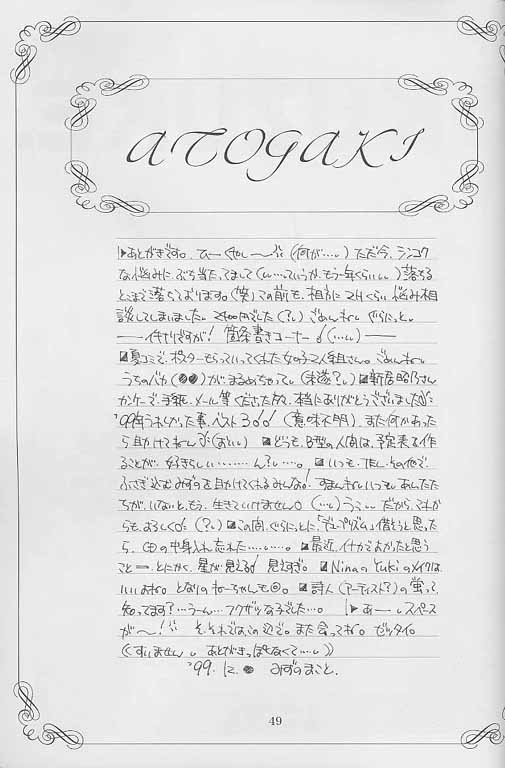 ATOGAKI
あとがきです。ひーくやしー〜(何が…。)ただ今、シンコク
な悩みに、ぶち当たってまして(い…っていうか、もう一年くらい。)落ちる
とこまで落ちております。(笑)この前も、相方に2Hくらい悩み相
談してしまいました。2400円でした(?。)ごめんねい ぐらにっと。
箇条書きコーナー
夏コミで、ポスターもらっていってくれた女の子2人組さん。ごめんねい
うちのバカ が (未遂?。) 新居昭乃さん
で、手紙、メール等くださた方、本当にありがとうございました
'99年うれしかった事、ベスト3 (意味不明)また何かあった
ら助けてねー (おい) どうも、B型の人間は、予定表を作
ることが、好きらしい………ん?…。 いつも、
ふさぎ込むみずのを助けてくれるみんな! すまんねいつも。あんたた
ちが、いないと、もう、生きていけません。(…。) だから、これか
らも、よろしく (?。) この間、ぐらにっとに、「デュープリズム」借そうと思った
ら、CDの中身入れ忘れた………。 最近、 よかったと思う
こと= とにかく、星が見える! 見えすぎ。 NinaのYukiのメイクは、
いいよね。となりのねーちゃんも◎。 詩人(アーティスト?)の蛍って、
知ってます?…うーん…フクザツな子でした…。 あー。スペース
が〜! そ、それでは、この辺で。また会ってね。ゼッタイ。
((すいません。あとがきっぽくなくて…。))
'99. 12. みずのまこと.
49